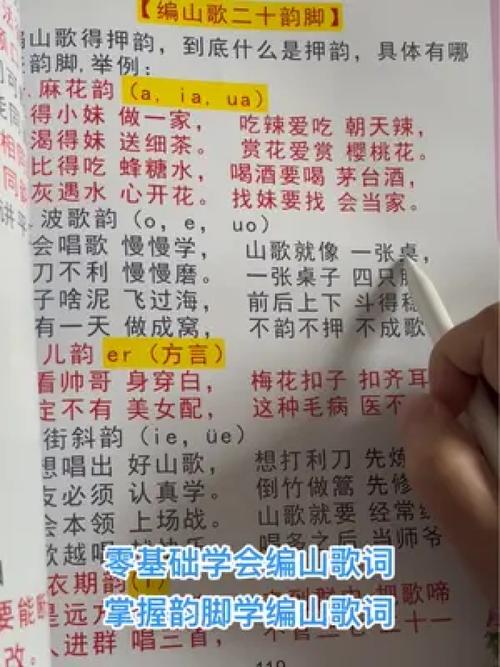 【编山歌二十韵脚】
编山歌得押韵，到底什么是押韵，具体有哪
韵脚.举例：
麻花韵（a，ia，ua）
得小妹 做一家， 吃辣爱吃 朝天辣，
渴得妹 送细茶。 赏花爱赏 樱桃花。
比得吃 蜂糖水， 喝酒要喝 茅台酒，
灰遇水 心开花。 找妹要找 会当家。
波歌韵（o，e，uo）
会唱歌 慢慢学， 山歌就像 一张桌，
刀不利 慢慢磨。 一张桌子 四只
子啥泥 飞过海， 前后上下 斗得
有一天 做成窝， 不韵不押 不成歌
儿韵 er（方言）
看帅哥 身穿白， 梅花扣子 扣齐耳
定不有 美女配， 这种毛病 医不
街斜韵（ie，üe）
想唱出 好山歌， 想打利刀 先炼
友必须 认真学。 倒竹做篙 先修
会本领 上场战。 山歌就要 经常
歌越唱 唱多之后 当师爷
零基础学会编山歌词
衣期韵
掌握韵脚学编山歌词
是远方 把歌啼
人进群 唱三首， 二十一
要能
改。